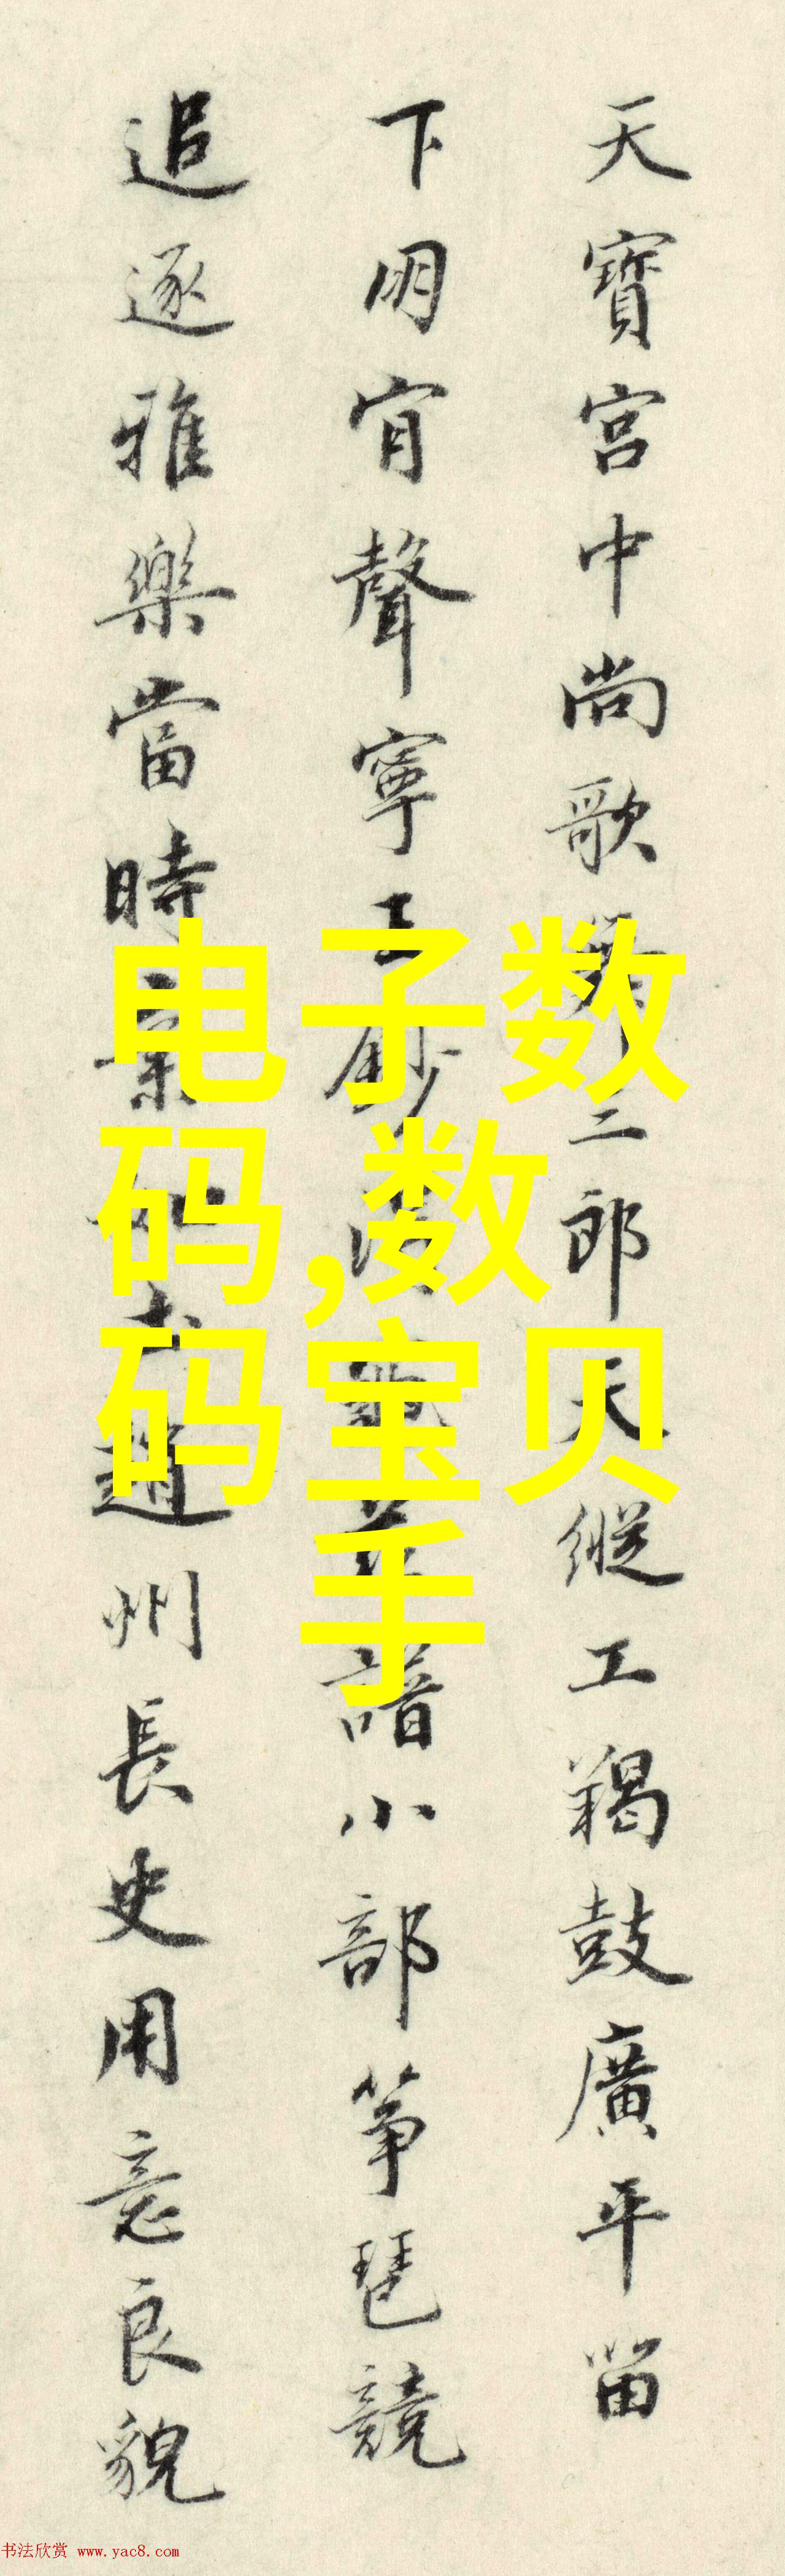 天寶宮中尚歌舞二郎天縱工羯鼓廣平留
下明宵聲寧王妙譜小部箏琶競
追逐雅樂當時棄趙州長史用意良貌
电子数
码,数
码宝贝
手
书法欣赏 www.yac8.com